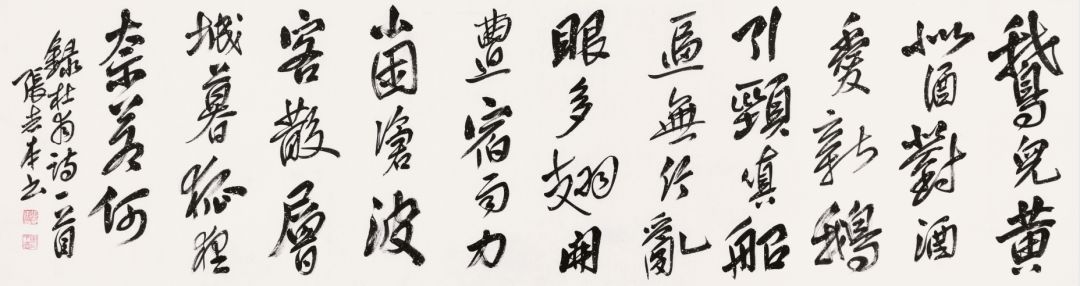 鵞兒黄
似酒對酒
愛新鵝
引頸嗔船
逼無行亂
眼多翅開
遭宿雨力
小困滄波
客散層
城暮狐狸
奈若何
録杜甫詩一首
張志本書